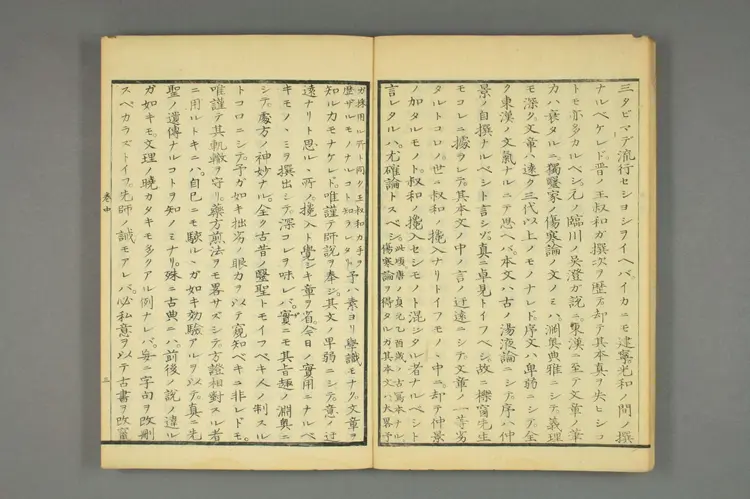 三タビマデ流行セシヨシヲイヘバイカニモ建寧光和ノ間ノ撰
ナルベケレド。晋ノ王叔和ガ撰次ヲ歴テ却テ其本真ヲ失ヒシコ
トモ亦多カルベシ。元ノ臨川ノ呉澄ガ説ニ。東漢ニ至テ文章ノ筆
力ハ衰タルニ獨醫家ノ傷寒論ノ文ノミハ。淵奥典雅ニシテ義理
モ深ク。文章ハ遠ク三代以上ノモノナレド。序文ハ卑弱ニシテ。全
ク東漢ノ文氣ナルニテ思ヘバ。本文ハ古ノ湯液論ニシテ。序ハ仲
景ノ自撰ナルベシト言シゾ。真ニ卓見トイフベシ。故ニ櫟窓先生
モコレニ據ラレテ。其本文ノ中ノ言ノ迂遠ニシテ。文章ノ一等劣
タルトコロノ。世ニ叔和ノ攙入ナリトイフモノヽ中ニ。却テ仲景
ノ加タルモノト。叔和ノ攙入セシモノト混ジタル者ナルベシト
言レタルハ。尤確論トスベシ。
此頃唐ノ貞元乙酉歳ノ古寫本ナル
傷寒論ヲ得タルガ其本文ハ大畧予
ガ採用ル所ト同ク王叔和ガ手ヲ
歴ザルモノナルコト知ラレタリ
予ハ素ヨリ學識モナク。文章ヲ
知ル力モナケレド。唯謹テ師説ヲ奉ジ。其文ノ卑弱ニシテ。意ノ迂
遠ナリト思ル丶所ヲ。攙入ト覺シキ章ヲ省。今日ノ實用ニナルベ
キモノヽミヲ撰出シテ。深コレヲ味レバ。實ニモ其旨趣ノ淵奥ニ
シテ。處方ノ神妙ナル。全ク古昔ノ醫聖トモイフベキ人ノ制スル
トコロニシテ。予ガ如キ拙劣ノ眼力ヲ以テ窺知ベキコ非レドモ。
唯謹テ其軌轍ヲ守リ。藥方煎法ヲモ畧サズシテ。方證相對スル者
ニ用ルトキニハ。自己ニ驗ル丶ガ如キ効驗アルヲ以テ。真ニ先
聖ノ遺傳ナルコトヲ知ノミナリ。殊ニ古典ニハ。前後ノ説ノ違ル
ガ如キモ。文理ノ曉カタキモ。多クアル例ナレバ。妄ニ字句ヲ改刪
スベカラズトイフ。先師ノ誡モアレバ。必私意ヲ以テ古書ヲ改竄
巻中
三